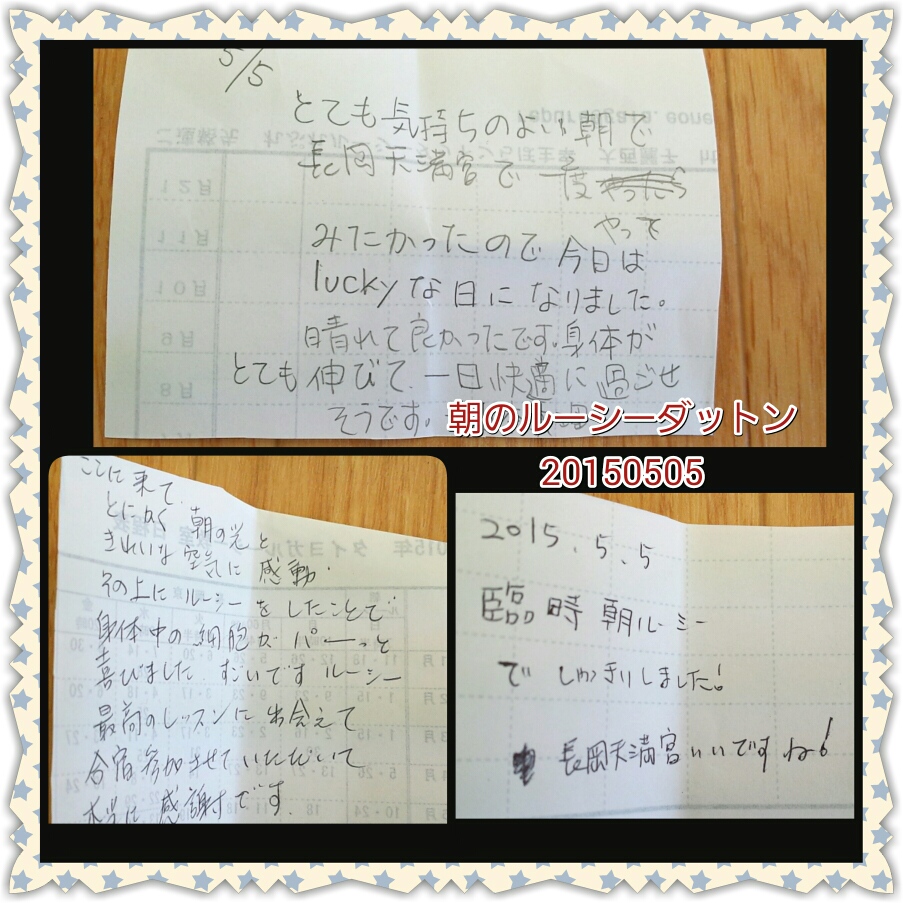 5/5
とても気持ちのよい朝で
長岡天満宮で一度
やって
みたかったので今日は
luckyな日になりました。
晴れて良かったです。身体が
とても伸びて、一日快適に過ごせ
そうです。
朝のルーシーダットン
20150505
ここに来て、
とにかく朝の光と
きれいな空気に感動。
その上にルーシーをしたことで
身体中の細胞がパーっと
喜びました。すごいですルーシー
最高のレッスンに出会えて
合宿参加させていただいて
本当に感謝です。
2015.5.5
臨時朝ルーシー
でしゃきりしました!
長岡天満宮いいですね!
12月
11月
10月
9月
8月